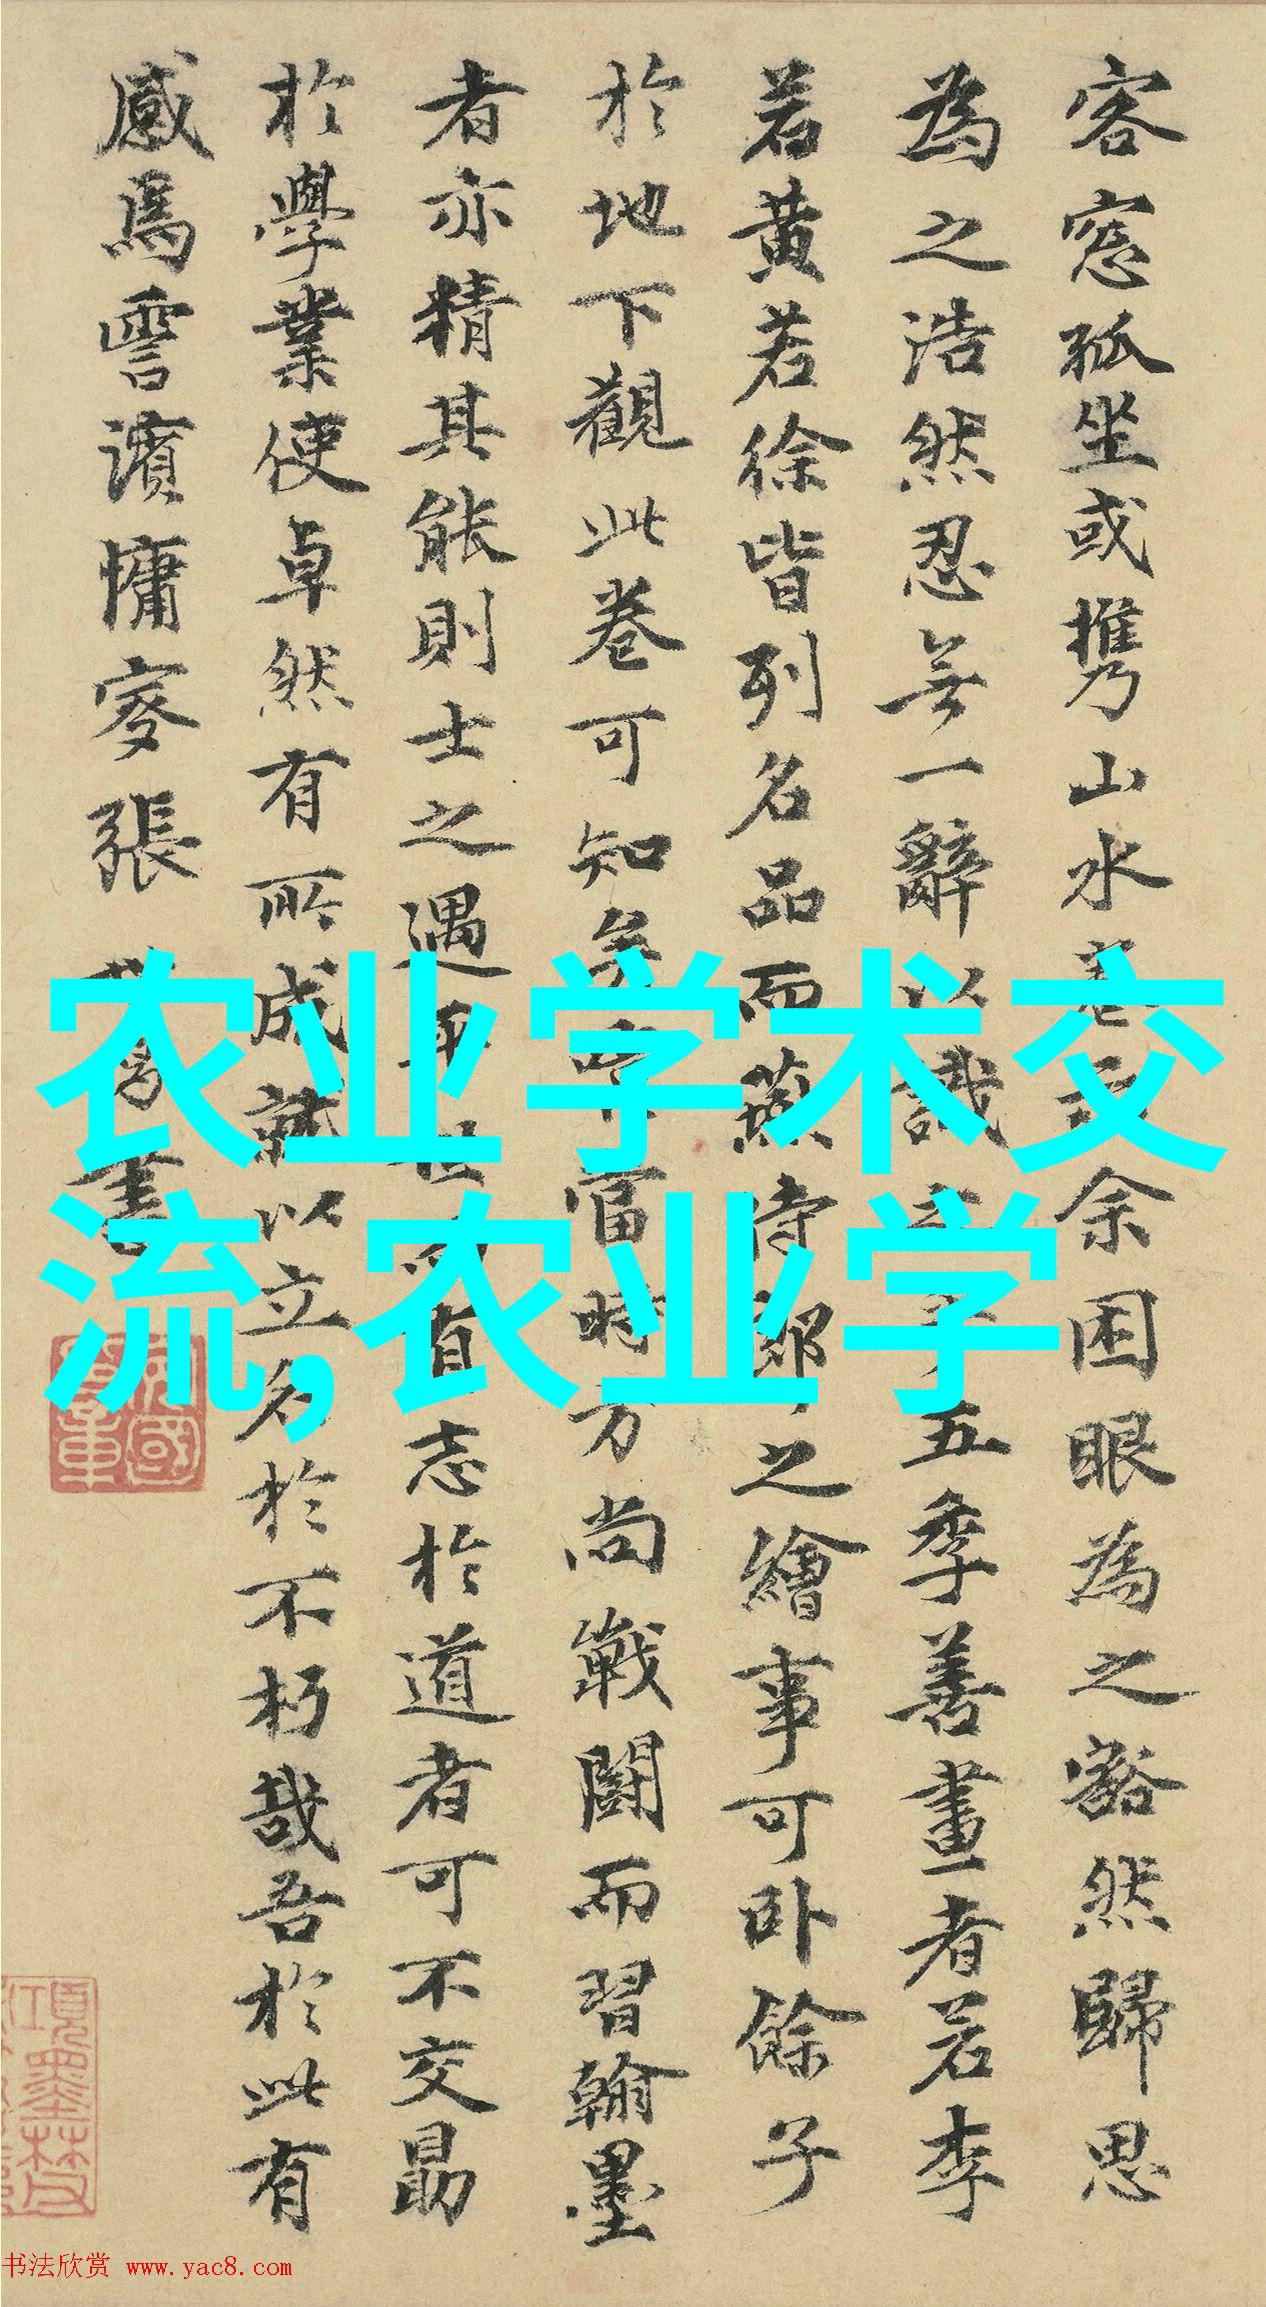 客窓孤坐或携山水卷
余困眼為之豁然歸思
為之浩然忍無一辭以識
五季善畫者若李
若黄若徐皆列名品而燕
侍郎之繪事可卧餘子
於地下觀此卷可知矣
當時方尚戰鬪而習翰墨
者亦精其能則士之遇
志於道者可不交勗
於學業使卓然有所成就以立名於不朽哉吾於此有
感焉雩濱慵叟張
書
农业学术交
流,农业学
书法欣赏 www.yac8.com